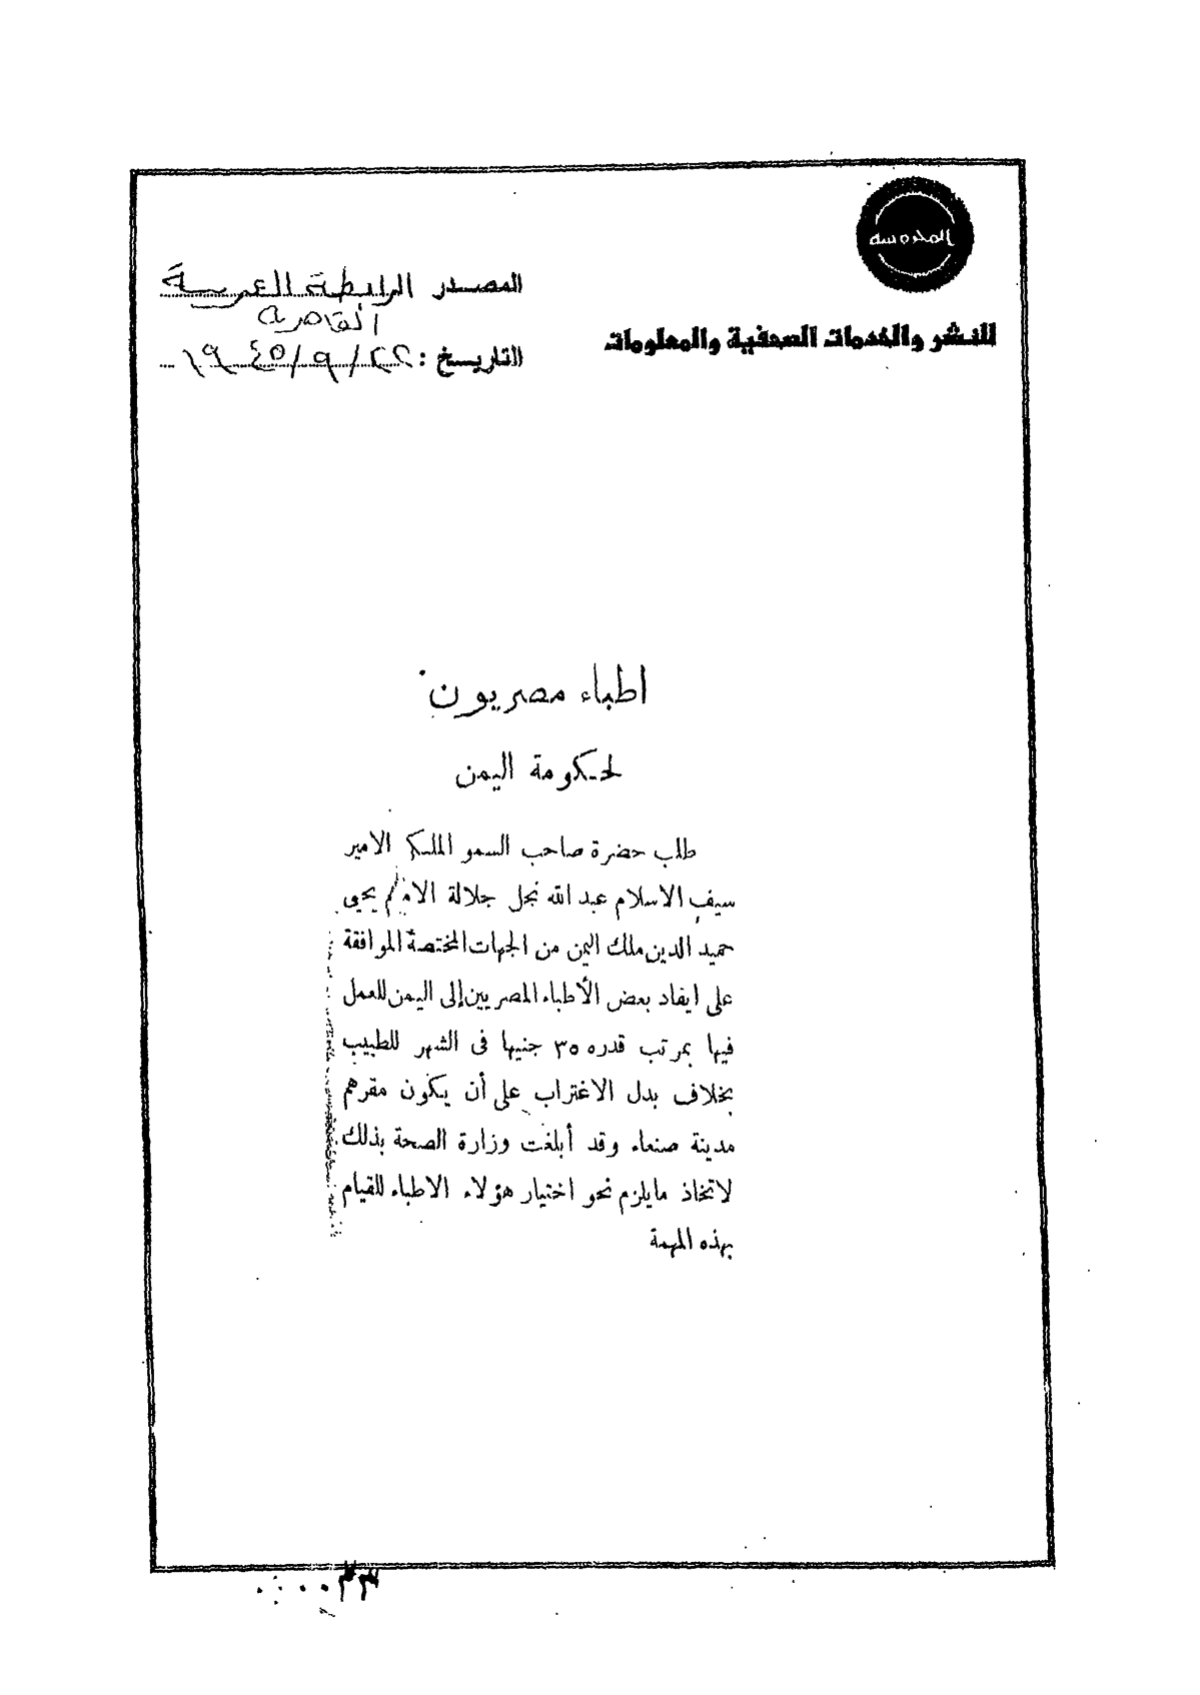 المحروسة
للنشر والخدمات الصحفية والمعلومات
المصدر الرابطة العربية
القاهرة
التاريخ : ٢٢/٩/١٩٤٥
اطباء مصريون
لحكومة اليمن
طلب حضرة صاحب السمو الملكى الامير
سيف الاسلام عبد الله نجل جلالة الامام يحيى
حميد الدين ملك اليمن من الجهات المختصة الموافقة
على ايفاد بعض الأطباء المصريين إلى اليمن للعمل
فيها بمرتب قدره ٣٥ جنيها فى الشهر للطبيب
بخلاف بدل الاغتراب على أن يكون مقرهم
مدينة صنعاء وقد أبلغت وزارة الصحة بذلك
لاتخاذ مايلزم نحو اختيار هؤلاء الاطباء للقيام
بهذه المهمة